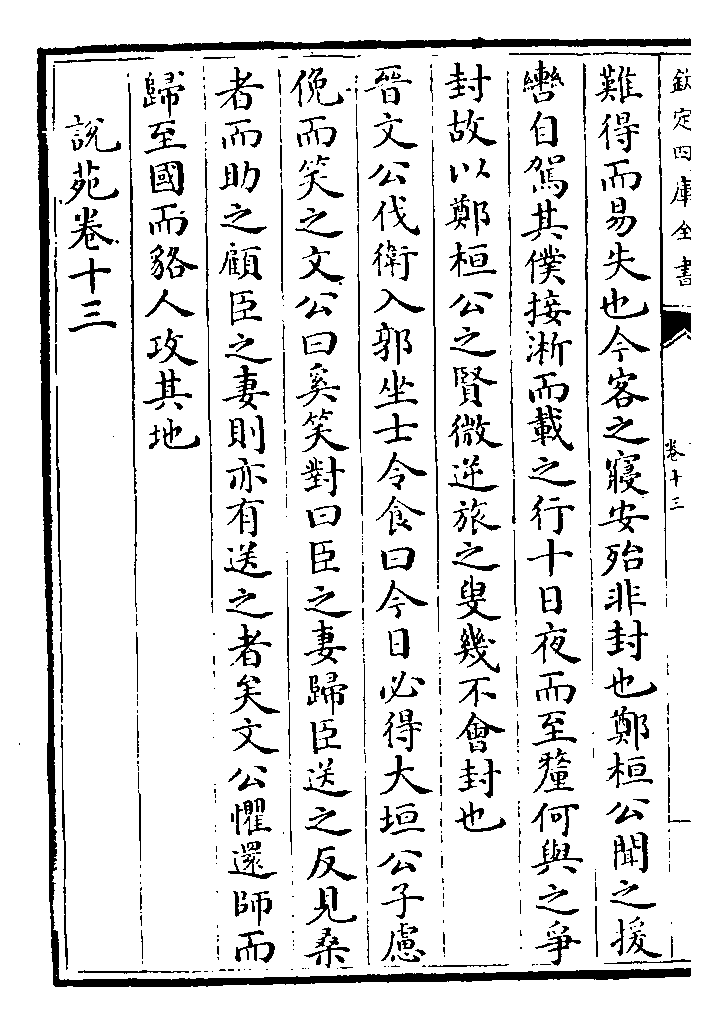 欽定四庫全書
卷十三
難得而易失也今客之寢安殆非封也鄭桓公聞之援
轡自駕其僕接淅而載之行十日夜而至釐何與之爭
封故以鄭桓公之賢微逆旅之叟幾不會封也
晉文公伐衛入郭坐士令食曰今日必得大垣公子慮
俛而笑之文公曰奚笑對曰臣之妻歸臣送之反見桑
者而助之顧臣之妻則亦有送之者矣文公懼還師而
歸至國而貉人攻其地
說苑卷十三